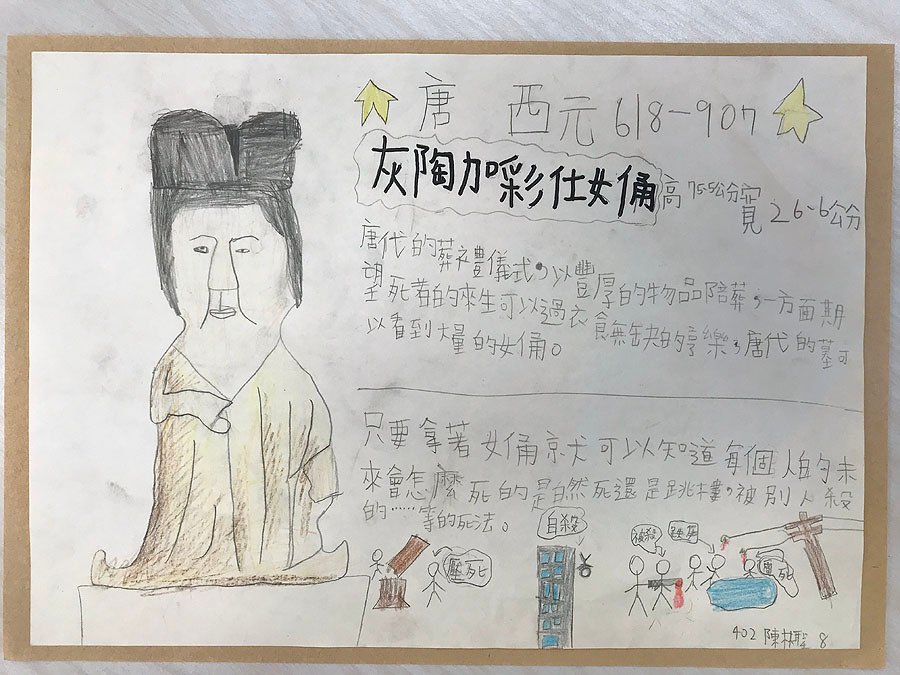 唐 西元618-907
灰陶加彩仕女俑 高75.5公分寬26.6公分
唐代的葬禮儀式,以豐厚的物品陪葬,一方面期
望死者的來生可以過衣食無缺的亨樂,唐代的墓可
以看到大量的女俑。
只要拿著女俑就可以知道每個人的未
來會怎麼死的是自然死還是跳樓,被別人殺
的……等的死法。
自殺
被殺
壓死
死
402 陳 8